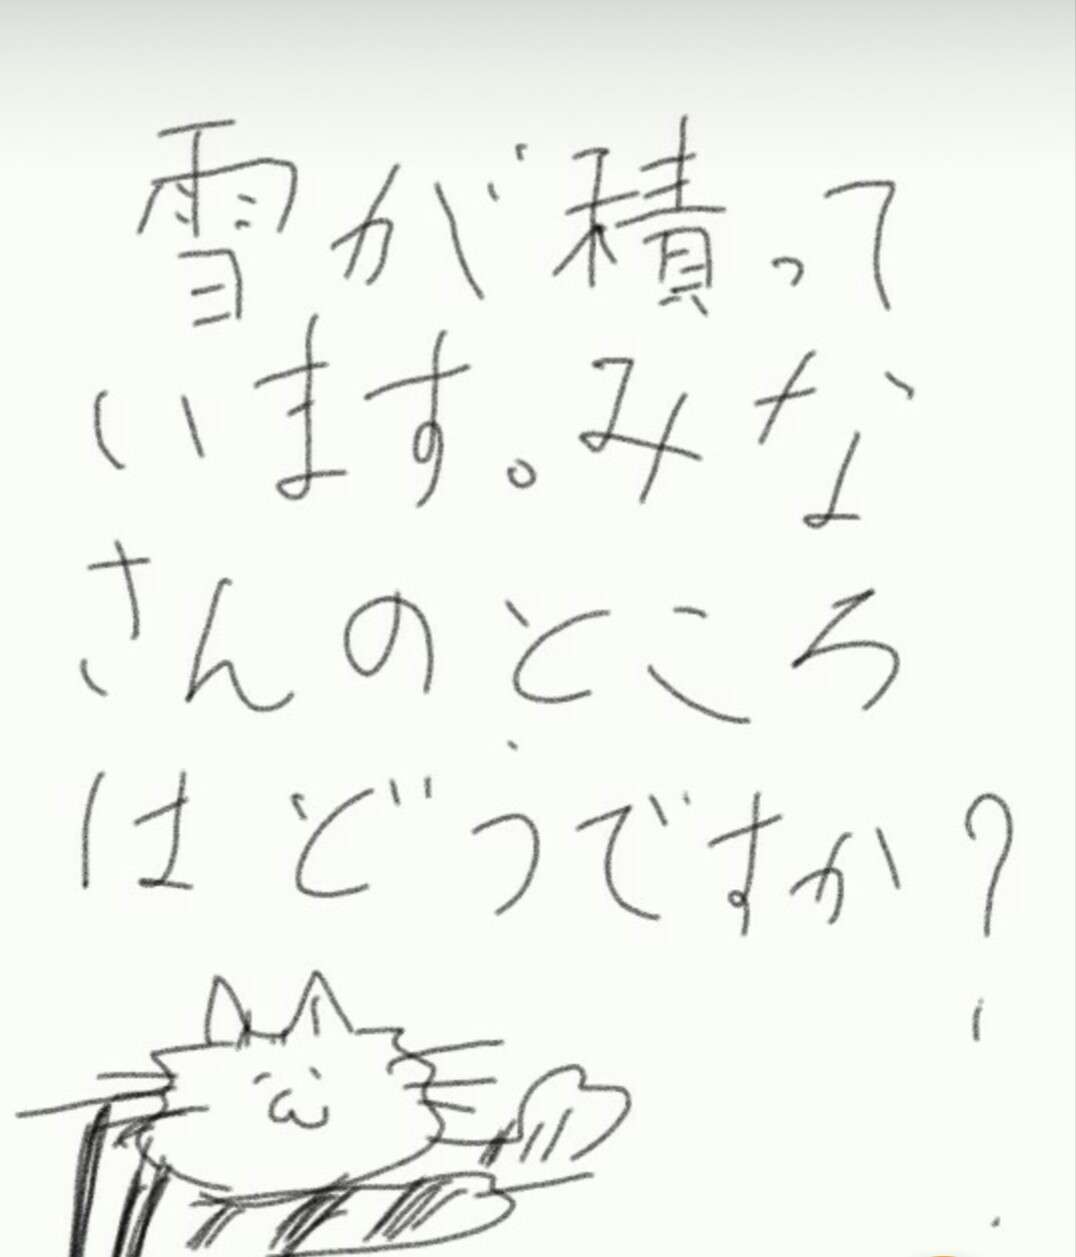 雪が積って
います。みな
さんのところ
はどうですか?